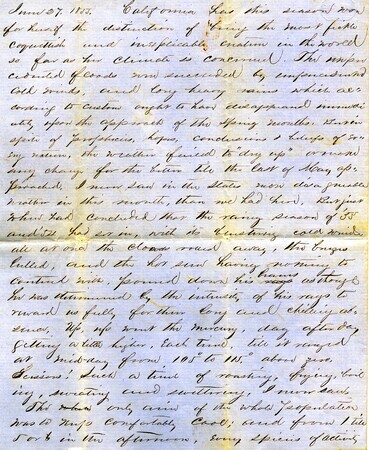 June 27. 1853. California has this season won
for herself the distinction of being the most fickle
coquettish and inexplicable creation in the world
so far as her climate is concerned. The unpre
cedented floods were succeeded by unprecedented
cold winds, and long heavy rains which ac-
cording to custom ought to have disappeared immedi
ately upon the approach of the Spring months. But in
spite of prophecies, hopes, conclusions & beliefs of
nature, the weather failed to "dry up" or make
any change for the better till the last of May ap-
proached. I never saw in the States more disagreeable
weather in this month, than we had here. But just
when had concluded that the rainy season of 53
and had set in, with its blustering cold winds
all at once the Clouds rolled away, the
lulled, and the hot sun having nothing to
contend with, poured down his beams as though
he was determined by the intensity of his rays to
reward us fully for their long and chilling ab-
sence. Up, up went the Mercury, day after day
getting a little higher, each time, till it ranged
at mid-day from 105° to 115° above zero.
Scissors! Such a time of roasting, frying, boil
ing, sweating and sweltering, I never saw.
The only aim of the whole population
was to keep comfortably Cool; and from 1 till
5 or 6 in the afternoon, every species of activity